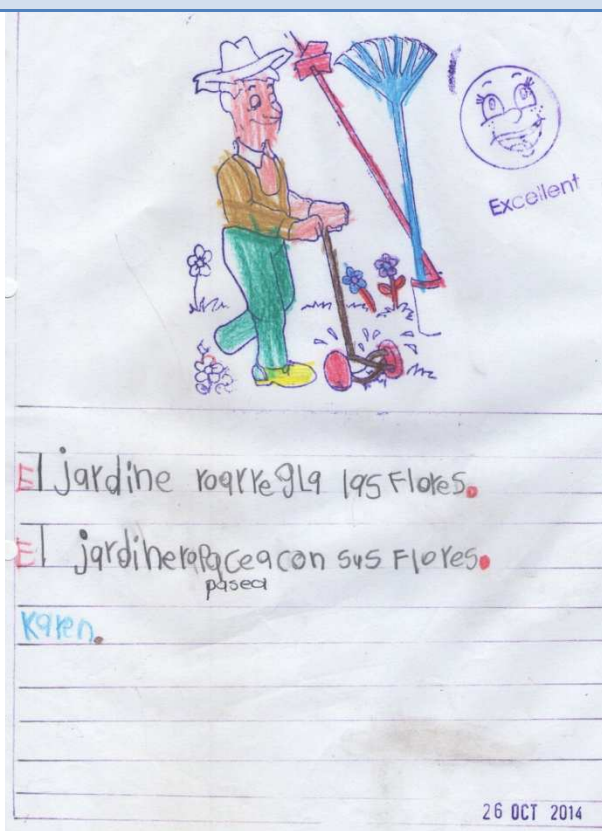 Excellent
El jardine roarregla las Flores.
El jardineropaceacon sus Flores.
pasea
Karen.
26 OCT 2014